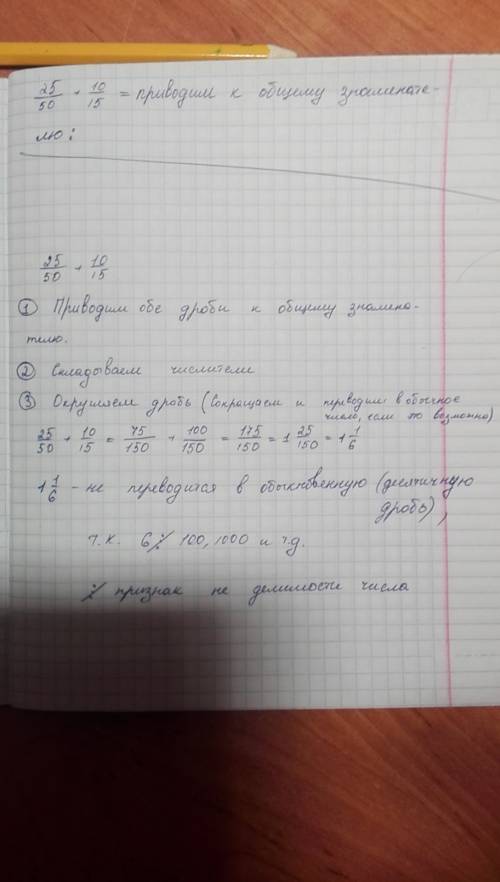 25/50 + 10/15 = приводим к общему знаменате-
лю:
25/50 + 10/15
① Приводим обе дроби к общему знамена-
телю.
② Складываем числители
③ Округляем дробь (Сокращаем и переводим в обычное
число, если это возможно)
25/50 + 10/15 = 75/150 + 100/150 = 175/150 = 1 25/150 = 1 1/6
1 1/6 - не переводится в обыкновенную (десятичную
дробь),
т.к. 6 ⁒ 100, 1000 и т.д.
⁒ признак не делимости числа